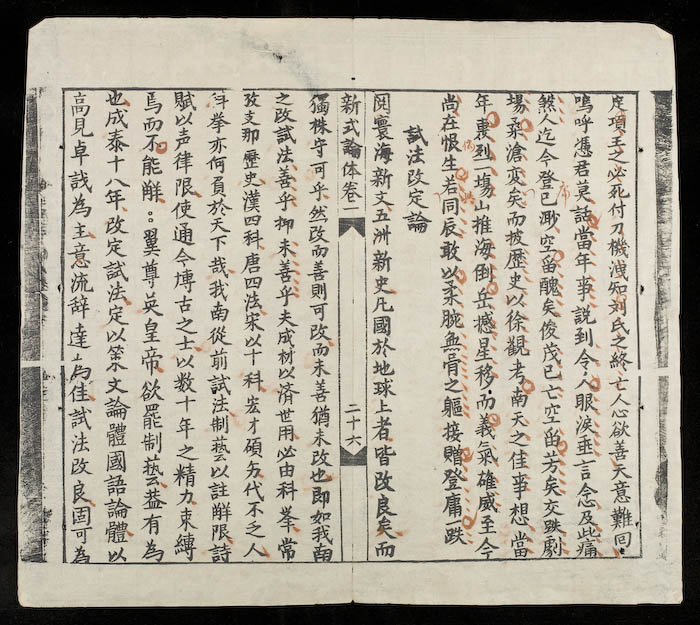 定項王之必死付刀機洩知刘氏之終亡人心欲善天意難回
嗚呼憑君莫話當年事説到令人眼淚垂言念及此痛
煞人迄今登已渺空留醜矣俊茂已亡空留芳矣交跌劇
場桑滄变矣而披歷史以徐觀考南天之佳事想當
年東列一塲山摧海倒岳撼星移而義氣雄威至今
尚在恨生若同辰敢以柔腕無骨之軀接贈登庸一跌
試法改定論
閲寰海新文五洲新史凡國於地球上者皆改良矣而
新式論体卷一
二十六
獨株守可乎然改而善則可改而未善猶未改也即如我南
之改試法善乎抑未善乎夫成材以済世用必由科举常
攷支那歷史漢四科唐四法宋以十科宏才碩彦代不乏人
科举亦何負於天下哉我南從前試法制藝以註觧限詩
賦以声律限使通今博古之士以数十年之精力束縛
焉而不能觧翼尊英皇帝欲罷制藝葢有為
也成泰十八年改定試法定以策文論體國語論體以
高見卓哉為主意流辞達為佳試法改良固可為